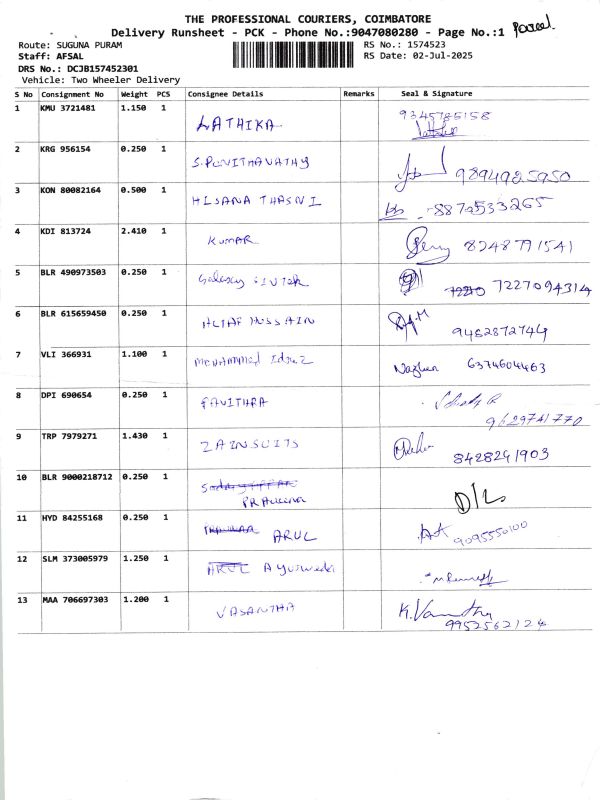 THE PROFESSIONAL COURIERS, COIMBATORE
Delivery Runsheet - PCK - Phone No.:9047080280 - Page No.:1 Parcel
Route: SUGUNA PURAM RS No.: 1574523
Staff: AFSAL RS Date: 02-Jul-2025
DRS No.: DCJB157452301
Vehicle: Two Wheeler Delivery
S No Consignment No Weight PCS Consignee Details Remarks Seal & Signature
1 KMU 3721481 1.150 1 LATHIKA 9345786158
2 KRG 956154 0.250 1 S.PUNITHAVATHY 9894985950
3 KON 80082164 0.500 1 HISANA THASNI 8870533265
4 KDI 813724 2.410 1 KUMAR 8248791541
5 BLR 490973503 0.250 1 Galaxy 7227094314
6 BLR 615659450 0.250 1 ALTAF HUSSAIN 9482872744
7 VLI 366931 1.100 1 Mohammed 6374604463
8 DPI 690654 0.250 1 PAVITHRA 9629741770
9 TRP 7979271 1.430 1 ZAINSUITS 8428241903
10 BLR 9000218712 0.250 1 D/L
11 HYD 84255168 0.250 1 ARUL 9095550100
12 SLM 373005979 1.250 1 ARUL
13 MAA 706697303 1.200 1 VASANTHA K.Vasantha
9952562124